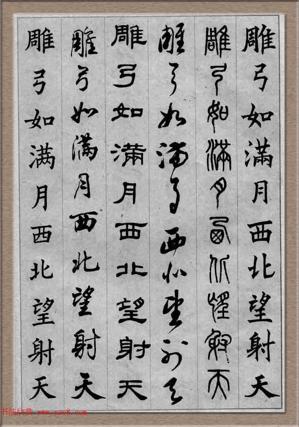 雕弓如滿月西北望射天
雕弓如滿月西北望射天
雕弓如滿月西北望射天
雕弓如滿月西北望射天
雕弓如滿月西北望射天
雕弓如满月西北望射天